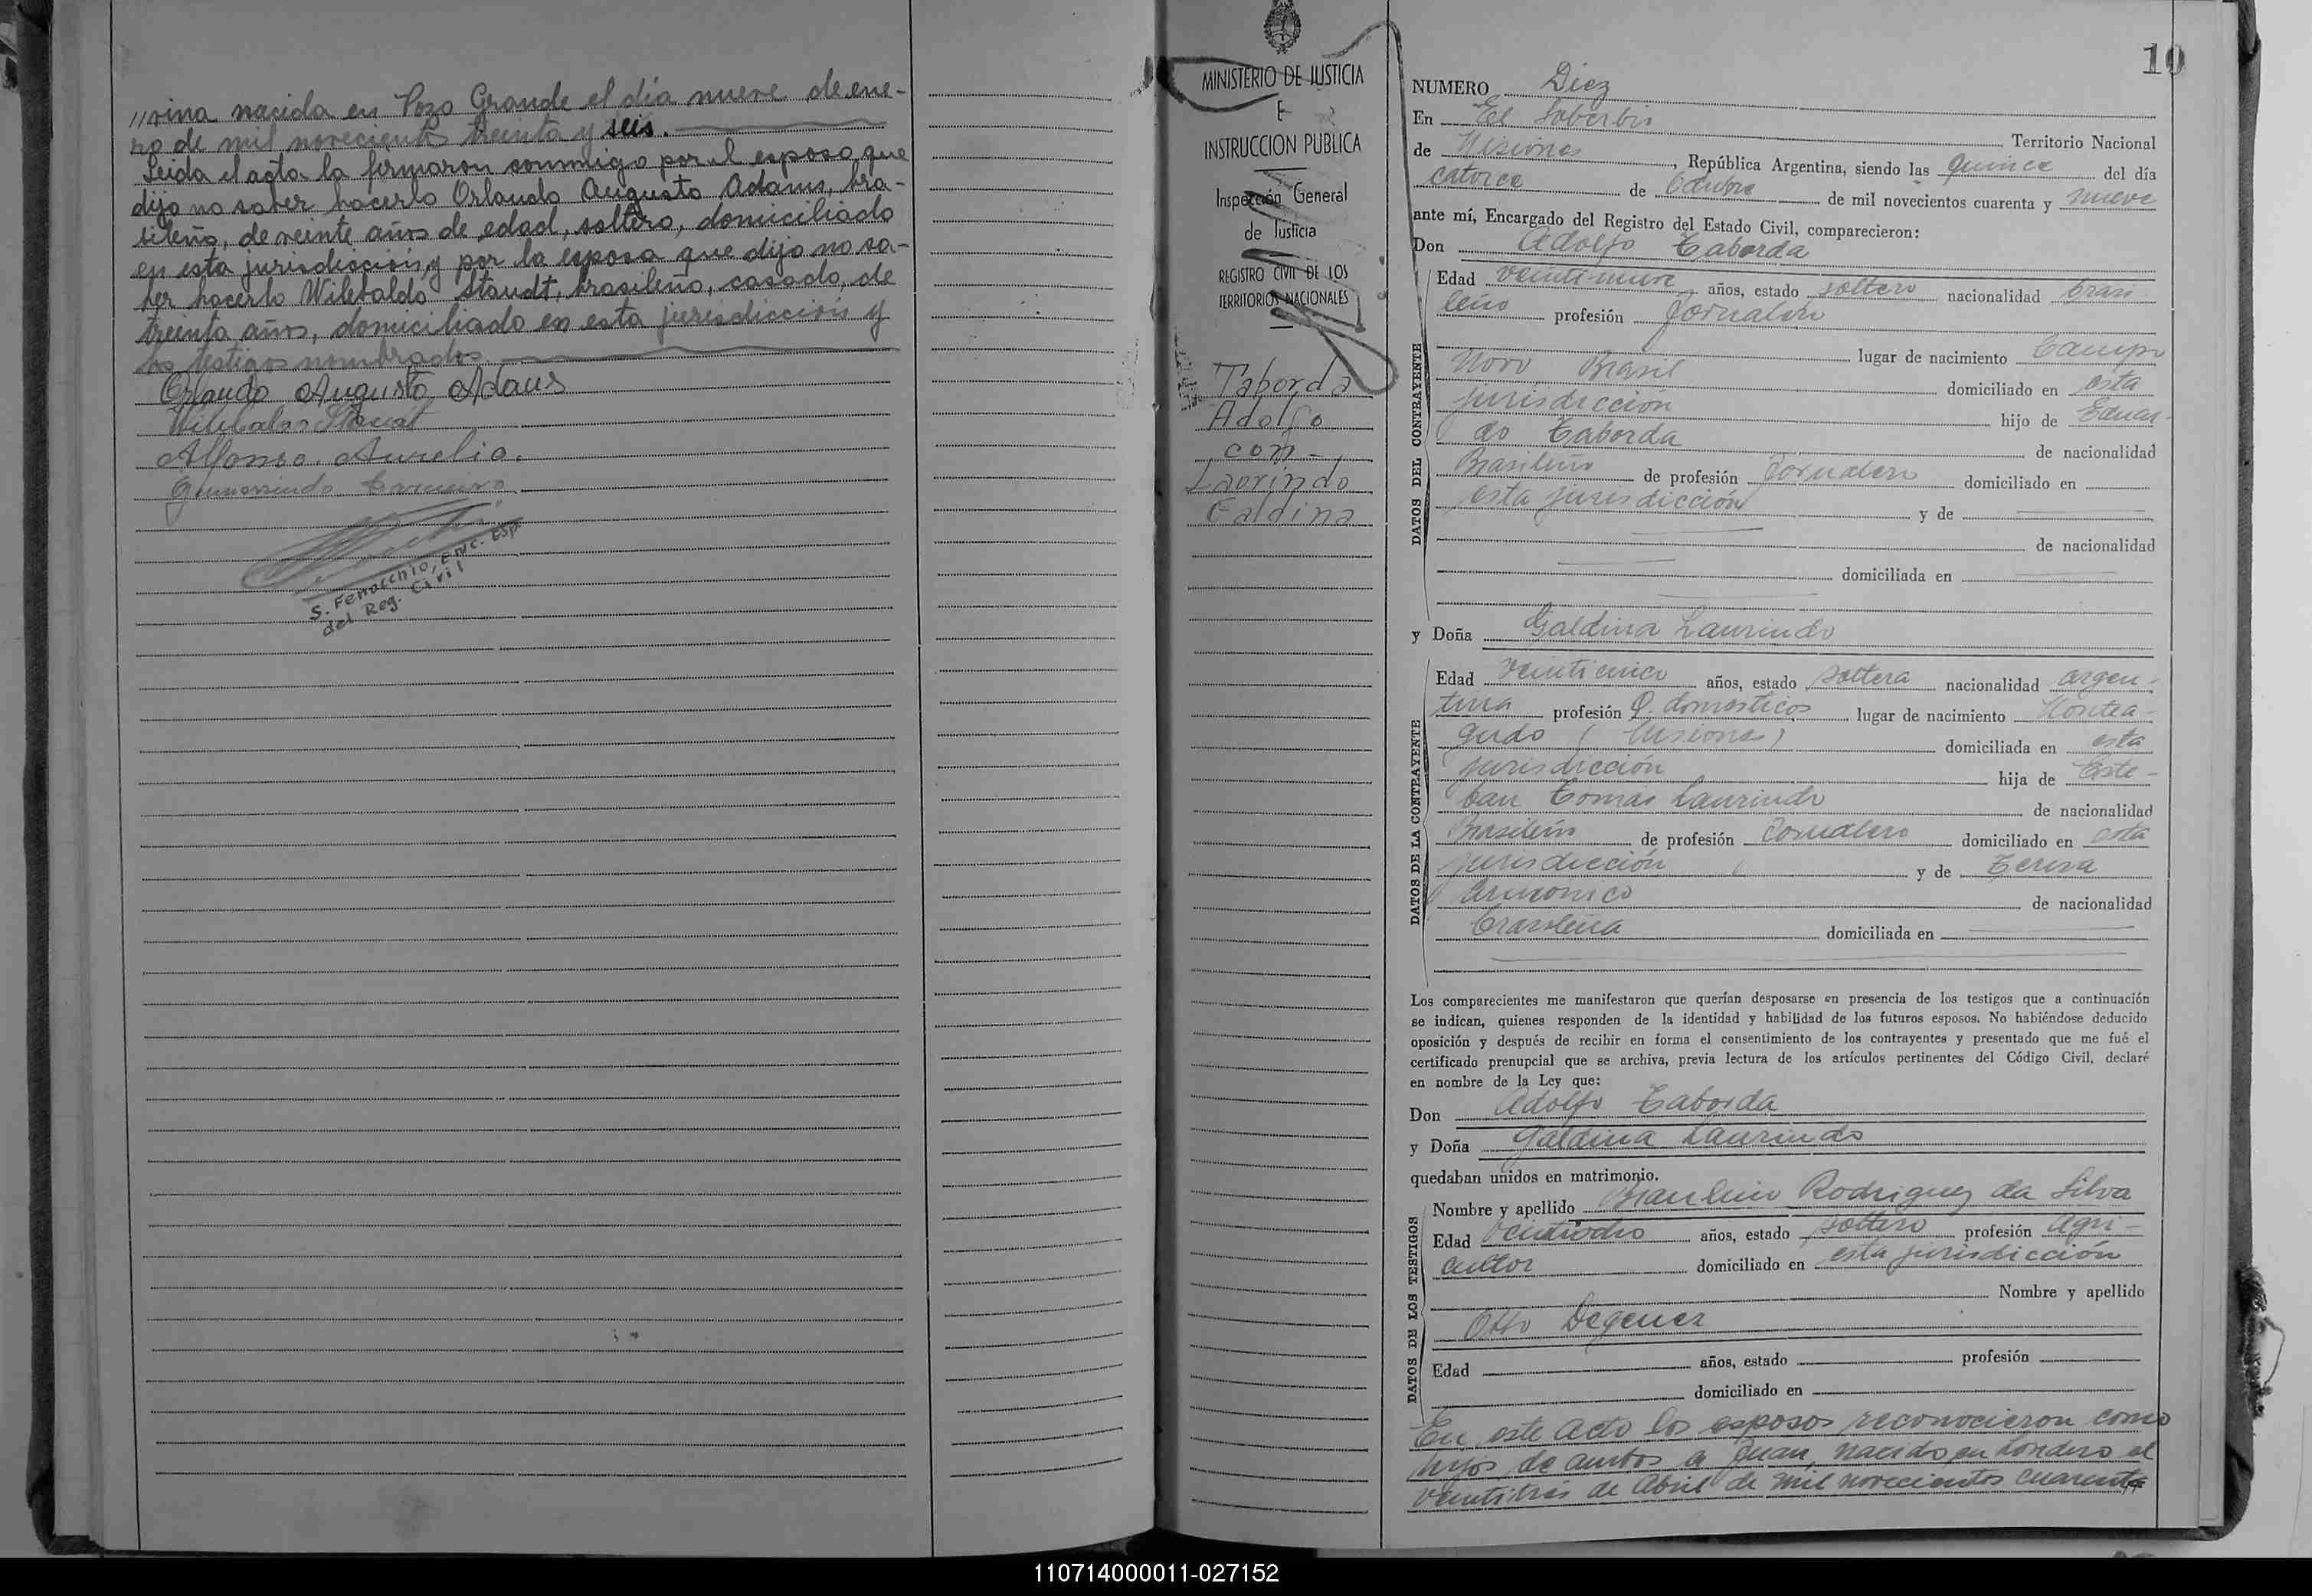 //rina nacida en Pozo Grande el día nueve de ene-
ro de mil novecientos treinta y seis.
Leida el acta la firmaron conmigo por el esposo que
dijo no saber hacerlo Orlando Augusto Adams, bra-
sileño, de veinte años de edad, soltero, domiciliado
en esta jurisdicción y por la esposa que dijo no sa-
ber hacerlo Wilebaldo Staudt, brasileño, casado, de
treinta años, domiciliado en esta jurisdicción y
los testigos nombrados
Orlando Augusto Adams
Staudt
Alfonso Aurelio.
Gumersindo
S. Ferracchio, Enc. Esp.
del Reg. Civil
MINISTERIO DE JUSTICIA
E
INSTRUCCION PUBLICA
Inspección General
de Justicia
REGISTRO CIVIL DE LOS
TERRITORIOS NACIONALES
Taborda
Adolfo
con -
Laorindo
Galdina
10
NUMERO Diez
En El Soberbio
Territorio Nacional
de Misiones, República Argentina, siendo las quince del día
catorce de Octubre de mil novecientos cuarenta y nueve
ante mí, Encargado del Registro del Estado Civil, comparecieron:
Don Adolfo Taborda
DATOS DEL CONTRAYENTE
Edad veintinueve años, estado soltero nacionalidad brasi
leño profesión Jornalero
lugar de nacimiento Campo
Novo Brasil
domiciliado en esta
jurisdicción
hijo de Eduar-
do Taborda
de nacionalidad
Brasileño de profesión Jornalero domiciliado en
esta jurisdicción y de
de nacionalidad
domiciliada en
y Doña Galdina Laurindo
DATOS DE LA CONTRAYENTE
Edad veinticinco años, estado soltera nacionalidad argen-
tina profesión Q. domesticos lugar de nacimiento Montea-
gudo (Misiones) domiciliada en esta
jurisdicción hija de Este-
ban Tomas Laurindo
de nacionalidad
Brasileño de profesión Jornalero domiciliado en esta
jurisdicción y de Teresa
de nacionalidad
brasileña domiciliada en
Los comparecientes me manifestaron que querían desposarse en presencia de los testigos que a continuación
se indican, quienes responden de la identidad y habilidad de los futuros esposos. No habiéndose deducido
oposición y después de recibir en forma el consentimiento de los contrayentes y presentado que me fué el
certificado prenupcial que se archiva, previa lectura de los artículos pertinentes del Código Civil, declaré
en nombre de la Ley que:
Don Adolfo Taborda
y Doña Galdina Laurindo
quedaban unidos en matrimonio.
DATOS DE LOS TESTIGOS
Nombre y apellido Rodriguez da Silva
Edad veintiocho años, estado soltero profesión Agri-
cultor domiciliado en esta jurisdicción
Nombre y apellido
Otto Degener
Edad años, estado profesión
domiciliado en
En este acto los esposos reconocieron como
hijos de ambos a Juan, nacido en Londero el
veintitrés de Abril de mil novecientos cuarenta
110714000011-027152